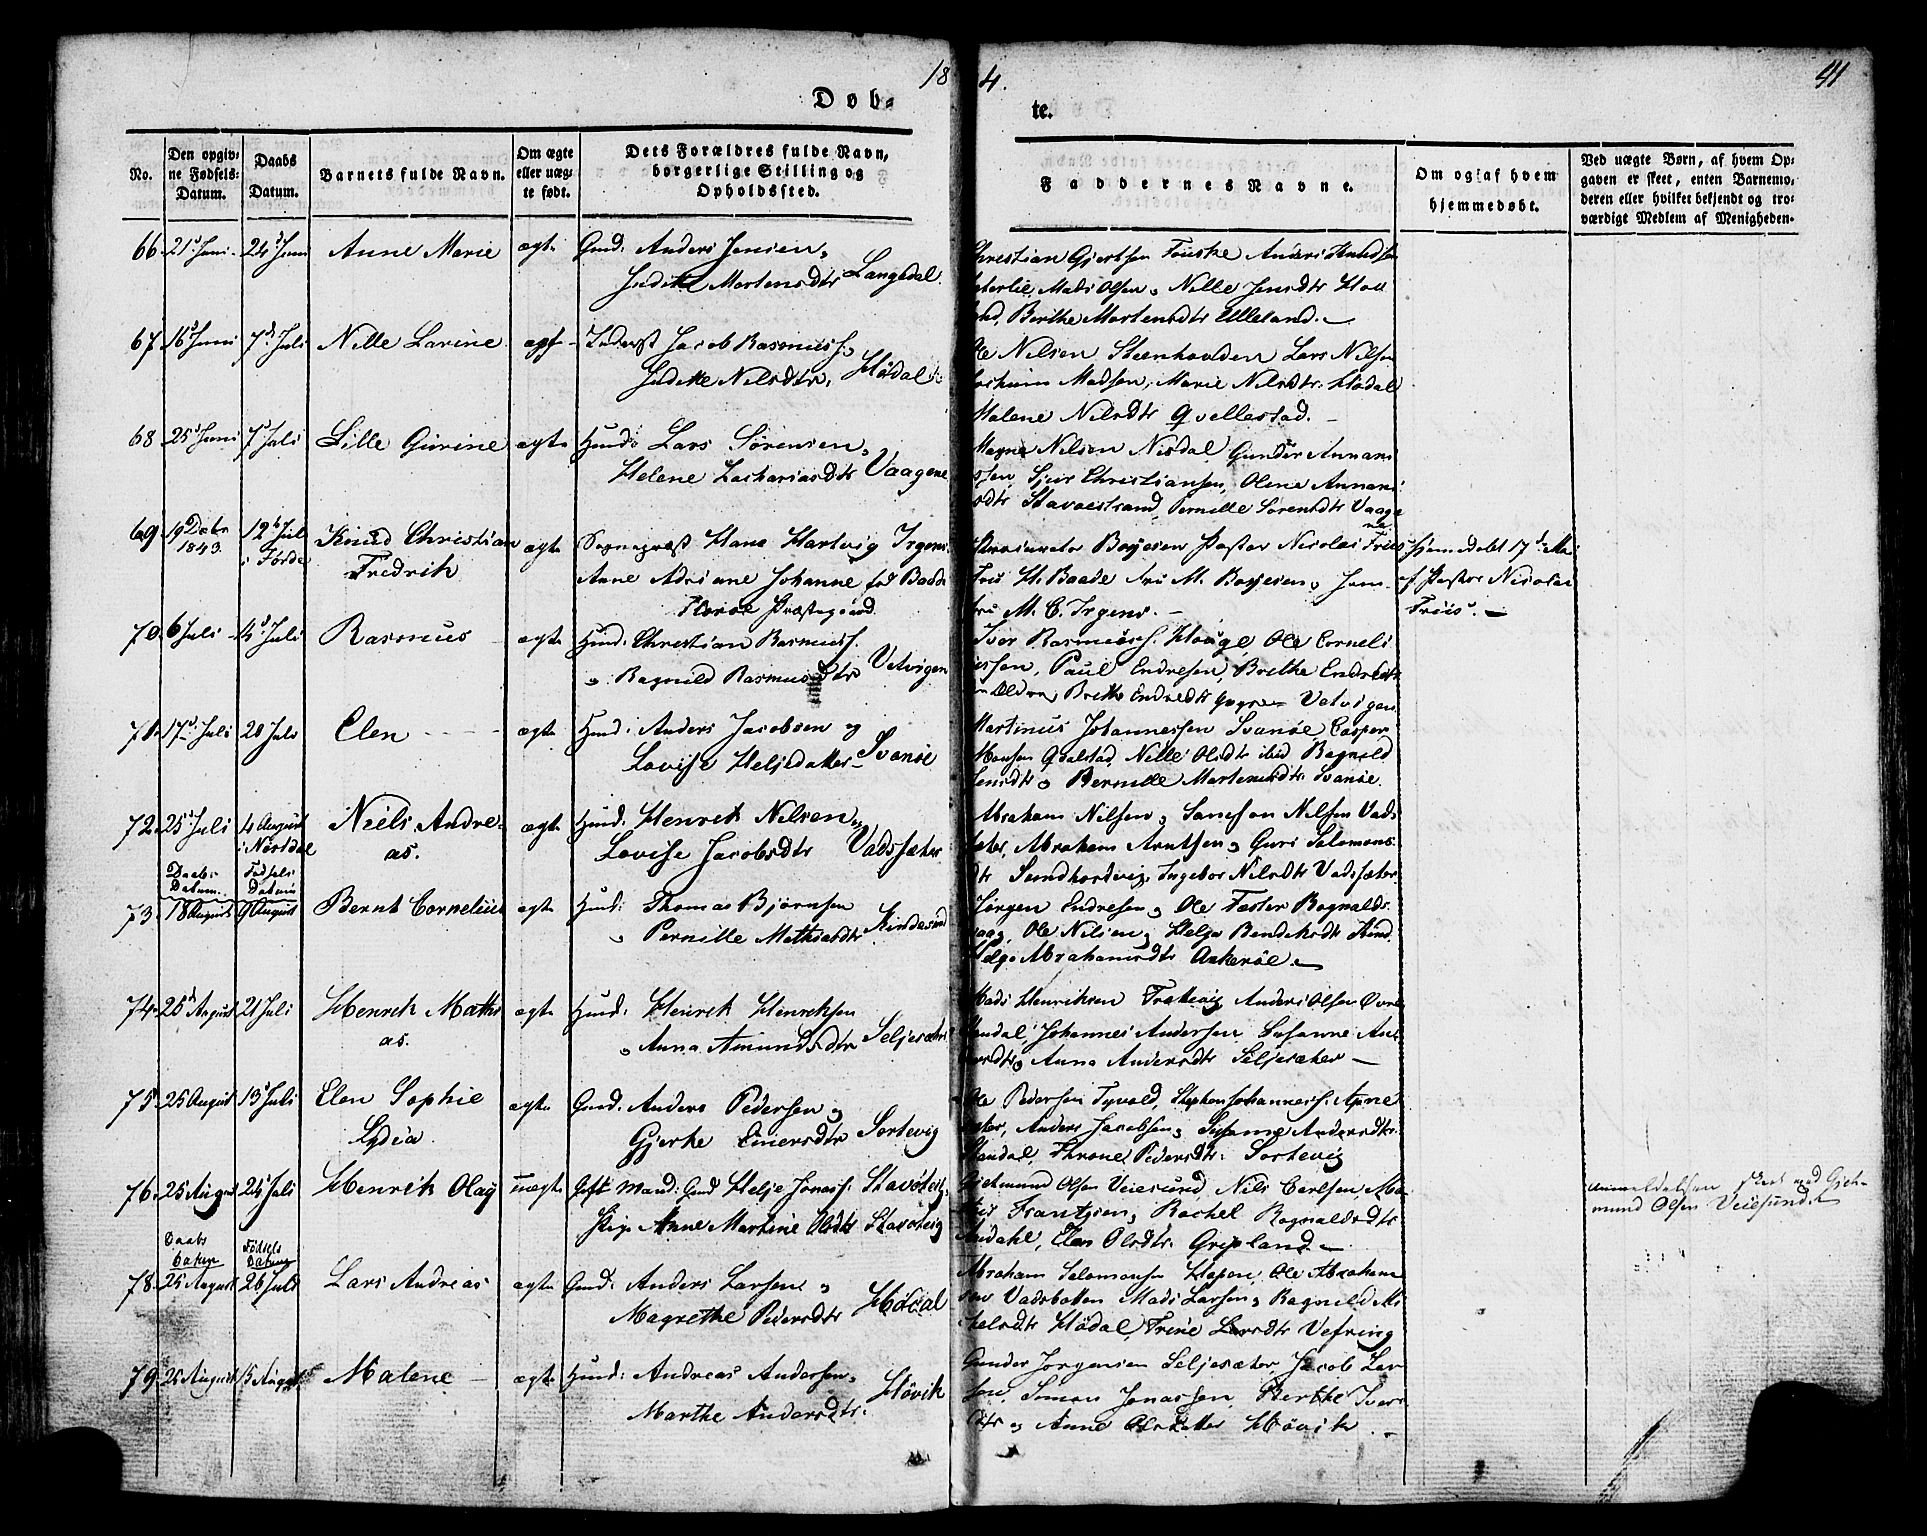 18
4.
41
Døb-
te.
No.
Den opgiv-
ne Fødsels-
Datum.
Daabs
Datum.
Barnets fulde Navn.
Om ægte
eller uæg-
te født.
Dets Forældres fulde Navn,
borgerlige Stilling og
Opholdssted.
Faddernes Navne.
Om og af hvem
hjemmedøbt.
Ved uægte Børn, af hvem Op-
gaven er skeet, enten Barnemo-
deren eller hvilket bekjendt og tro-
værdigt Medlem af Menigheden-
66 21 Juni 24 Juni Anne Marie ægte Gmd. Anders Jensen,
Martensdtr Langedal
Christian Gjertsen Anders
Mads Olsen Nille Jensdtr
Berthe Martensdtr Ulleland
67 16 Juni 7 Juli Nille Larine ægte Inderst Jacob Rasmuss.
Nilsdtr. Hødal
Ole Nilsen Steenhovden Lars Nilsen
Madsen, Marie Nilsdtr. Hødal
Malene Nilsdtr Qvellestad
68 25 Juni 7 Juli Lille Gurine ægte Huusm. Lars Sørensen,
Helene Zachariasdtr Vaagene
Magne Nilsen Nisdal Gunder
Christiansen, Oline
Stavoestrand, Pernille Sørensdtr Vaage
ne
69 19 Decbr 1843 12 Juli i Førde Knud Christian
Fredrik
ægte Sognepræst Hans Hartvig Irgens
Anne Adriane Johanne fød Baade
Præstegaard
Procurator Boyesen Pastor Nicolai Friis
Fru H. Baade Fru M. Boyesen, Jom-
fru M. C. Irgens.
hjemmedøbt 17 Mai
af Pastor Nicolai
Friis.
70 6 Juli Juli Rasmus ægte Huusm. Christian Rasmuss.
Ragnild Rasmusdtr Vetvigen
Iver Rasmuss. Houge, Ole Corneli
ussen, Paul Endresen, Brithe Endresdtr
Brithe Endresdtr Vetvigen
71 17 Juli 28 Juli Elen ægte Huusm. Anders Jacobsen og
Lovise Heljedatter Svanøe
Martinus Johannessen Svanøe, Casper
Hansen Qvalstad, Nille Olsdtr ibid Ragnild
Jensdtr Pernille Martensdtr Svanøe.
72 25 Juli 4 August i Nørdal Niels Andre-
as.
ægte Huusm. Henrik Nilsen
Lovise Jacobsdtr Vadsæter
Abraham Nilsen, Samson Nilsen Vad-
sæter, Abraham Arntsen, Guri Salomons-
dtr Ingebor Nilsdtr Vadsæter
Daabs
Datum
Fødsels
Datum
73 18 August 9 August Bernt Cornelius ægte Huusm. Thomas Bjørnsen
Pernille Mathiasdtr Kindesund
Jørgen Endresen, Ole Tæster Rognalds-
vaag, Ole Nilsen, Helge Bendiksdtr Kind
Helge Abrahamsdtr Askerøe
74 25 August 21 Juli Henrik Mathi
as.
ægte Huusm. Henrik Henriksen
Anna Amundsdtr Seljesæter
Mads Henriksen Anders Olsen
Standal, Johannes Andersen Susanne An
dersdtr, Anna Andersdtr Seljesæter
75 25 August 13 Juli Elen Sophie
Lydia
ægte Gmd. Anders Pedersen og
Gjerke Einersdtr Sortevig
Ole Pedersen Tyvold, Stephen Johanness.
sæter, Anders Jacobsen, Susanne Andersdtr
Standal, Throne Pedersdtr Sortevig
76 25 August 24 Juli Henrik Olay uægte Gift Mand Gmd Helje Jonass. Stavøteig
Pige Anne Martine Olsdtr Stavøteig
Gjetmund Olsen Veiesund, Nils Carlsen, Ma-
Frantzsen, Rachel Rognaldsdtr
Endahl, Elen Olsdtr. Gripland
Anmeldelsen skeet ved Gjet-
mund Olsen Veiesundet
Daabs
Datum
Fødsels
Datum
78 25 August 26 Juli Lars Andreas ægte Gmd. Anders Larsen
Magrethe Pedersdtr Hødal
Abraham Salomonsen Hopen, Ole Abraham
sen Vadsbotten Mads Larsen, Ragnild Mi
kelsdtr Hødal, Trine Larsdtr Vefring
79 25 August 15 August Malene ægte Huusm. Andreas Andersen,
Marthe Andersdtr. Høvik
Gunder Jørgensen Seljesæter, Jacob Lar
sen, Simon Jonassen, Berthe Ivers
dtr og Anne Olsdatter Høvik